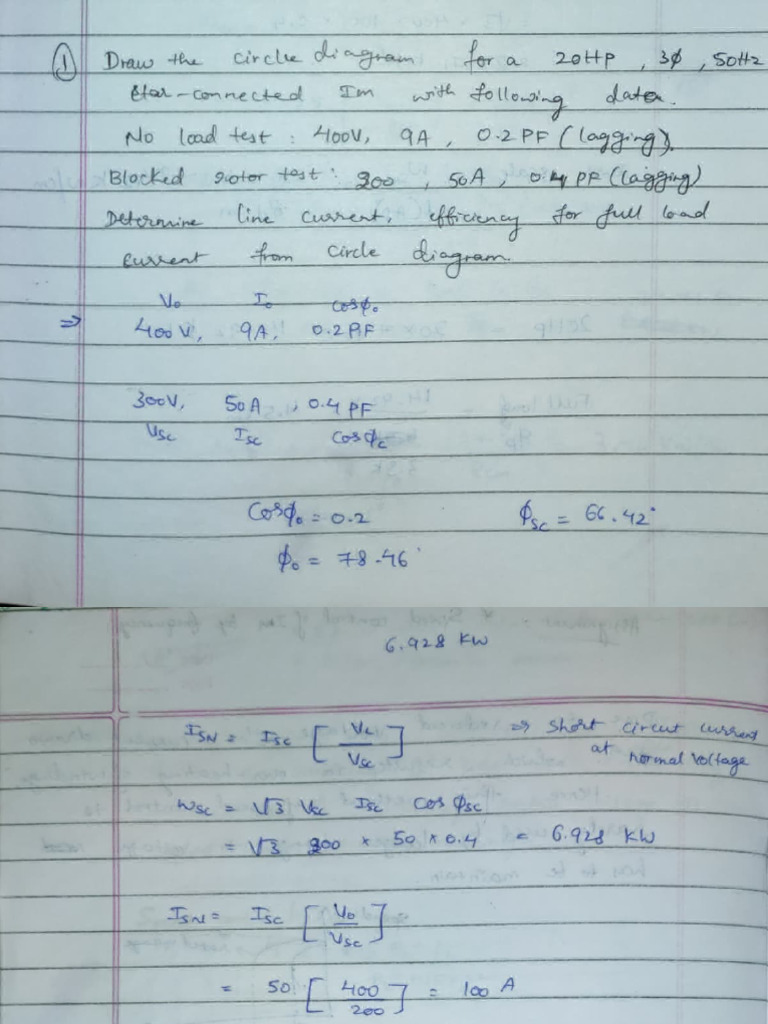 ① Draw the circle diagram for a 20HP, 3φ, 50Hz
star-connected Im with following data.
No load test: 400V, 9A, 0.2 PF (lagging).
Blocked rotor test: 200, 50A, 0.4 PF (lagging)
Determine line current, efficiency for full load
current from circle diagram.
V₀ I₀ cosφ₀
⇒ 400V, 9A, 0.2 PF
300V, 50A, 0.4 PF
Vsc Isc Cosφc
Cosφ₀ = 0.2 φsc = 66.42°
φ₀ = 78.46°
6.928 KW
ISN = Isc [VL/Vsc] ⇒ short circut current
at normal voltage
Wsc = √3 Vsc Isc Cos φsc
= √3 200 × 50 × 0.4 = 6.928 KW
ISN = Isc [V₀/Vsc]
= 50 [400/200] = 100 A